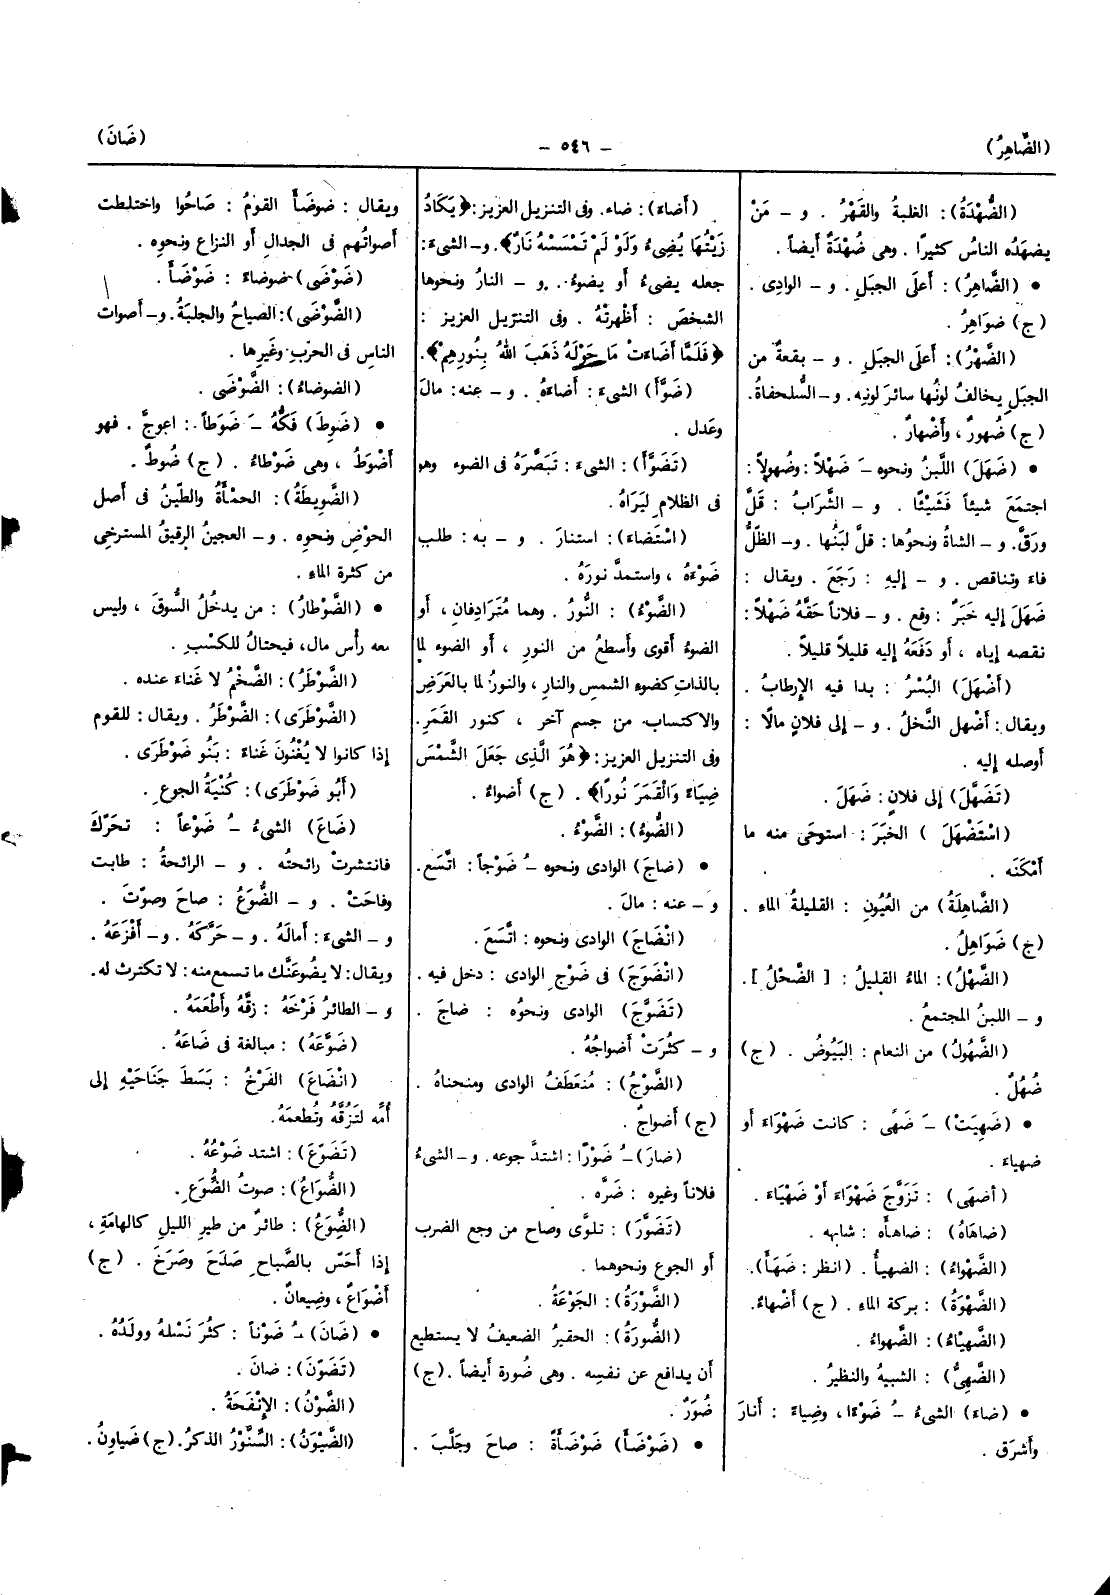 (الضَّاهِرُ)
- ٥٤٦ -
(ضَانَ)
(الضُّهْدَةُ): الغلبةُ والقَهْرُ . و - مَنْ
يضهَدُه الناسُ كثيرًا . وهى ضُهْدَةٌ أيضاً .
• (الضَّاهِرُ) : أعلَى الجبَلِ . و - الوادِى .
(ج) ضواهِرُ .
(الضَّهْرُ): أَعلَى الجَبَلِ . و - بقعةٌ من
الجبَلِ يخالفُ لونُها سائرَ لونِه. و-السُّلحفاةُ.
(ج) ضُهورٌ ، وأَضْهارٌ .
• (ضَهَلَ) اللَّبنُ ونحوه -َ ضَهْلاً: وضُهولاً:
اجتمَعَ شيئاً فَشَيْئًا . و - الشَّرَابُ : قَلَّ
ورَقَّ. و - الشاةُ ونحوُها: قلَّ لبَنُها . و- الظلُّ
فاء وتناقص . و - إليهِ : رَجَعَ . ويقال :
ضَهَلَ إليه خَبَرٌ : وقع . و - فلاناً حَقَّهُ ضَهْلاً:
نقصه إياه ، أو دَفَعَهُ إليه قليلاً قليلاً .
(أَضْهَلَ) البُسْرُ : بدا فيه الإرطابُ .
ويقال : أَضْهل النَّخلُ . و - إلى فلانٍ مالًا :
أوصله إليه .
(تَضَهَّلَ) إلى فلانٍ : ضَهَلَ .
(اسْتَضْهَلَ ) الخبَرَ : استوحَى منه ما
أَمْكَنَه .
(الضَّاهِلَةُ) من العُيُونِ : القليلةُ الماءِ .
(ج) ضَوَاهِلُ .
(الضَّهْلُ) : الماءُ القليلُ : [ الضَّحْلُ ] .
و - اللبنُ المجتمعُ .
(الضَّهُولُ) من النعام : البَيُوضُ . (ج)
ضُهُلٌ .
• (ضَهِيَتْ) -َ ضَهًى : كانت ضَهْوَاءَ أو
ضهياء .
(أضهَى) : تَزَوَّجَ ضَهْوَاءَ أَوْ ضَهْيَاءَ .
(ضاهَاهُ) : ضاهـأه : شابهه .
(الضَّهْواءُ) : الضهيأُ . (انظر : ضَهَأَ).
(الضَّهْوَةُ) : بركة الماء . (ج) أَضْهاءٌ.
(الضَّهْيَاءُ) : الضَّهواءُ .
(الضَّهِىُّ) : الشبيهُ والنظيرُ .
• (ضاءَ) الشىءُ -ُ ضَوْءًا ، وضِياءً : أنارَ
وأشرَق .
(أضاءَ): ضاء. وفى التنزيل العزيز: ﴿يَكَادُ
زَيْتُهَا يُضِىءُ وَلَوْ لَمْ تَمْسَسْهُ نَارٌ﴾. و- الشىءَ:
جعله يضىءُ أو يضوءُ . و - النارُ ونحوها
الشخصَ : أظْهرتْهُ . وفى التنزيل العزيز :
﴿فَلَمَّا أَضَاءَتْ مَا حَوْلَهُ ذَهَبَ اللهُ بِنُورِهِمْ﴾.
(ضَوَّأَ) الشىءَ : أضاءَهُ . و - عنه : مالَ
وعَدل .
(تَضَوَّأَ) : الشىءَ : تَبَصَّرَهُ فى الضوء وهو
فى الظلام ليَرَاهُ .
(اسْتَضاءَ): استنارَ . و - به : طلب
ضَوْءَهُ ، واستمدَّ نورَهُ .
(الضَّوْءُ) : النُّورُ . وهما مُتَرَادِفانِ ، أو
الضوءُ أقوى وأسطعُ من النورِ ، أو الضوء لما
بالذاتِ كضوءِ الشمسِ والنارِ ، والنورُ لما بالعَرَضِ
والاكتساب من جسم آخر ، كنور القَمَرِ.
وفى التنزيل العزيز: ﴿هُوَ الَّذِى جَعَلَ الشَّمْسَ
ضِيَاءً وَالْقَمَرَ نُورًا﴾ . (ج) أضواءٌ .
(الضُّوءُ) : الضَّوْءُ .
• (ضاجَ) الوادى ونحوه -ُ ضَوْجاً: اتَّسَع.
و - عنه : مالَ .
(انْضَاجَ) الوادى ونحوه : اتَّسَعَ .
(انْضَوَجَ) فى ضَوْجِ الوادى : دخل فيه .
(تَضَوَّجَ) الوادى ونحوُه : ضاجَ .
و - كَثُرَتْ أَضواجُهُ .
(الضَّوْجُ) : مُنعَطَفُ الوادى ومنحناهُ .
(ج) أَضواجٌ .
(ضارَ) -ُ ضَوْرًا : اشتدَّ جوعه. و- الشىءُ
فلاناً وغيره : ضَرَّه .
(تَضَوَّرَ) : تلوَّى وصاح من وجع الضرب
أو الجوع ونحوهما .
(الضَّوْرَةُ) : الجَوْعَةُ .
(الضُّورَةُ) : الحقيرُ الضعيفُ لا يستطيع
أن يدافع عن نفسِه . وهى ضُورة أيضاً . (ج)
ضُوَرٌ .
• (ضَوْضَأَ) ضَوْضَأَةً : صاحَ وجَلَّبَ .
ويقال : ضوضَأَ القومُ : صَاحُوا واختلطت
أصواتُهم فى الجدالِ أو النزاع ونحوِه .
(ضَوْضَى) ضوضاءَ : ضَوْضَأَ .
(الضَّوْضَى): الصياحُ والجلبَةُ. و- أصوات
الناسِ فى الحرْبِ وغَيرِها .
(الضوضاءُ) : الضَّوْضَى .
• (ضَوِطَ) فَكُّهُ -َ ضَوَطاً : اعوجَّ . فهو
أَضْوَطُ ، وهى ضَوْطاءُ . (ج) ضُوطٌ .
(الضَّوِيطَةُ) : الحمْأَةُ والطِّينُ فى أصل
الحوْضِ ونحوِه . و - العجينُ الرقيقُ المسترخِى
من كثرة الماءِ .
• (الضَّوْطارُ) : من يدخُلُ السُّوقَ ، وليس
معه رأْس مال، فيحتالُ للكسْبِ .
(الضَّوْطَرُ) : الضَّخْمُ لا غَناءَ عنده .
(الضَّوْطَرَى) : الضَّوْطَرُ . ويقال : للقوم
إذا كانوا لا يُغْنُونَ غَناءً : بَنُو ضَوْطَرَى .
(أَبُو ضَوْطَرَى) : كُنْيَةُ الجوعِ .
(ضَاعَ) الشىءُ -ُ ضَوْعاً : تحرّكَ
فانتشرتْ رائحتُه . و - الرائحةُ : طابت
وفاحَتْ . و - الضُّوَعُ : صاحَ وصوّتَ .
و - الشىءَ : أمالَهُ . و- حَرَّكَهُ . و- أَفْزَعَهُ .
ويقال: لا يضُوعَنَّك ما تسمع منه: لا تكترث له.
و - الطائرُ فَرْخَهُ : زقَّهُ وأطْعَمَهُ .
(ضَوَّعَهُ) : مبالغة فى ضَاعَهُ .
(انْضَاعَ) الفَرْخُ : بَسَطَ جَنَاحَيْهِ إلى
أُمِّه لتَزُقَّهُ وتُطعمَهُ.
(تَضَوّعَ) : اشتد ضَوْعُهُ .
(الضُّوَاعُ) : صوتُ الضُّوَعِ.
(الضُّوَعُ) : طائرٌ من طيرِ الليلِ كالهامَةِ ،
إذا أحَسّ بالصَّباحِ صَدَحَ وصَرَخَ . (ج)
أَضْوَاعٌ ، وضِيعانٌ .
• (ضَانَ) -ُ ضَوْناً : كثُرَ نَسْلهُ وولَدُهُ .
(تَضَوّنَ) : ضانَ .
(الضَّوْنُ) : الإنْفَحَةُ .
(الضَّيْوَنُ) : السِّنَّوْرُ الذكرُ. (ج) ضَياوِنُ .